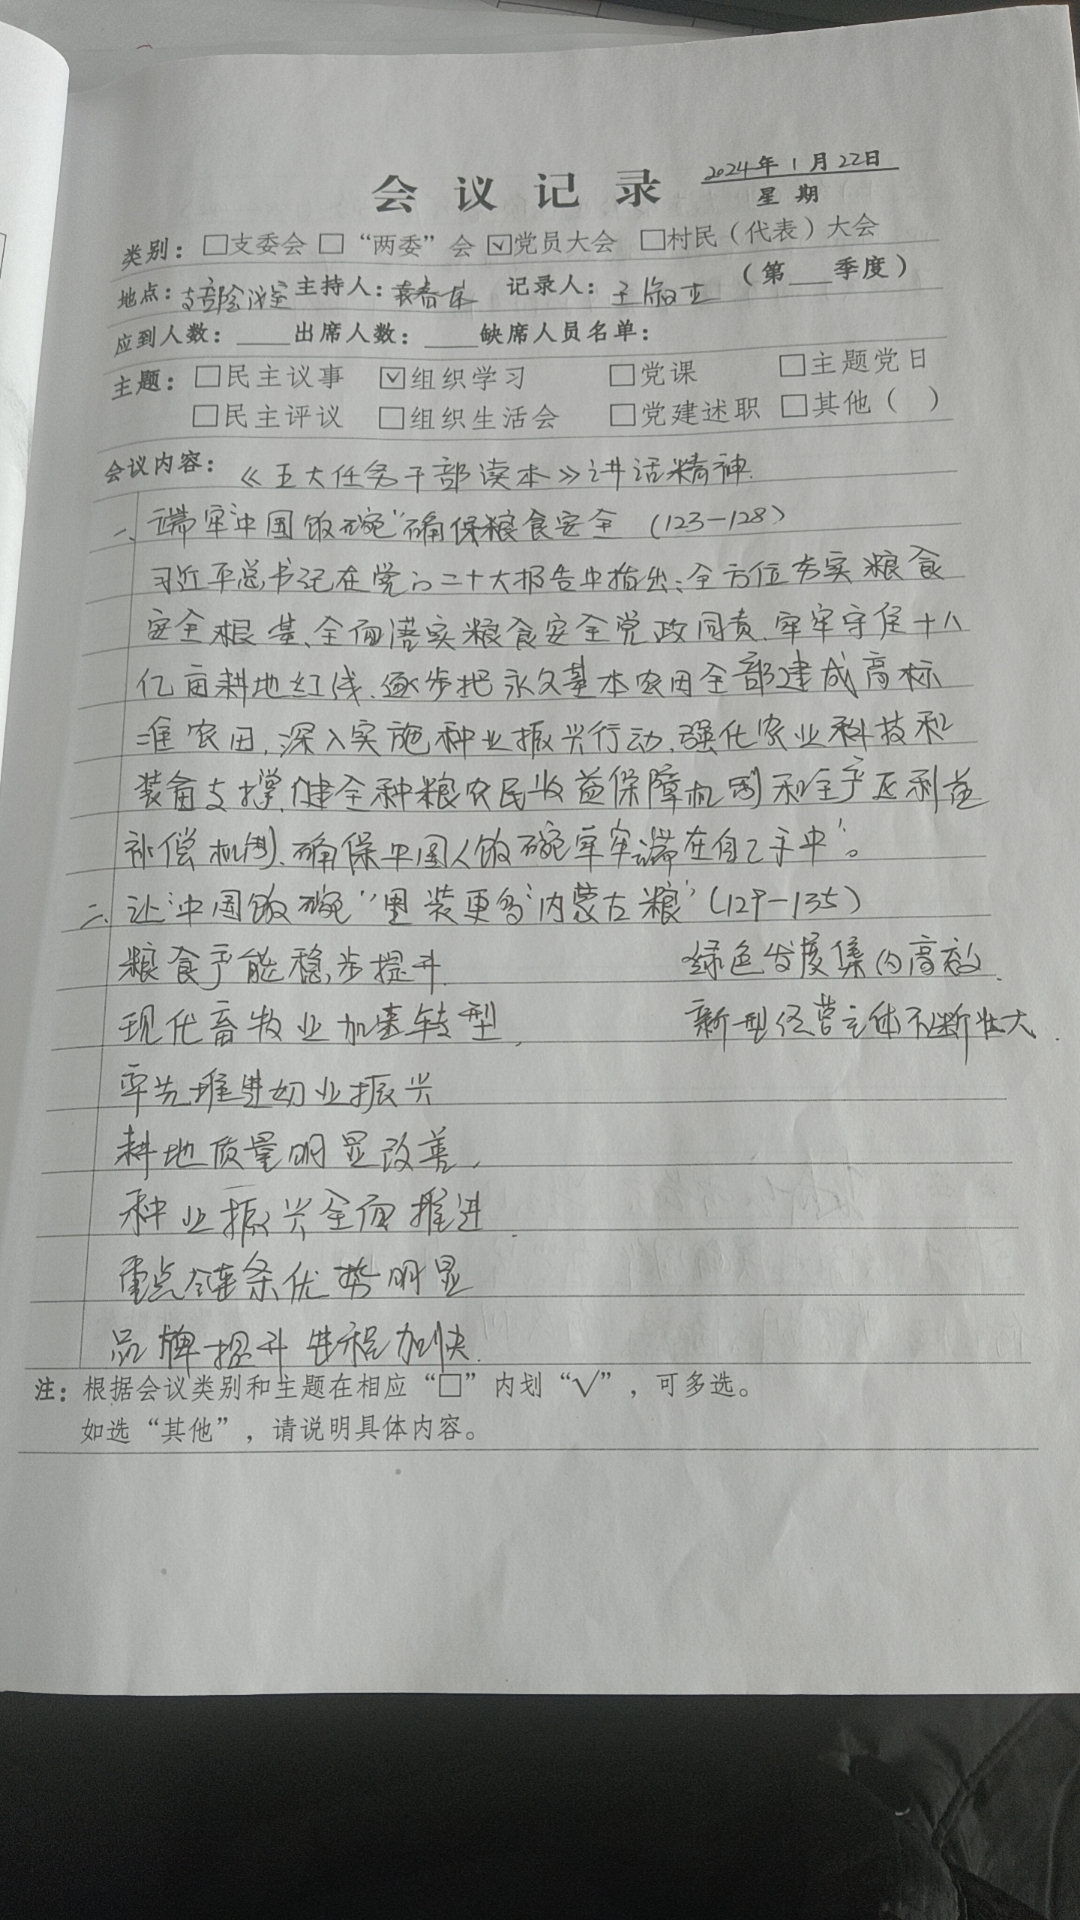 会议记录
2024年1月22日
星期
类别：□支委会 □“两委”会 ☑党员大会 □村民（代表）大会
地点：支部会议室 主持人： 记录人：王淑 （第___季度）
应到人数：____出席人数：____缺席人员名单：
主题：□民主议事 ☑组织学习 □党课 □主题党日
□民主评议 □组织生活会 □党建述职 □其他（ ）
会议内容：《五大任务干部读本》讲话精神.
一、端牢“中国饭碗”确保粮食安全（123—128）
习近平总书记在党的二十大报告中指出：全方位夯实粮食
安全根基、全面落实粮食安全党政同责、牢牢守住十八
亿亩耕地红线、逐步把永久基本农田全部建成高标
准农田，深入实施种业振兴行动、强化农业科技和
装备支撑，健全种粮农民收益保障机制和主产区利益
补偿机制、确保中国人饭碗牢牢端在自己手中”。
二、让“中国饭碗”里装更多“内蒙古粮”（129—135）
粮食产能稳步提升. 绿色发展集约高效.
现代畜牧业加速转型， 新型经营主体不断壮大.
率先推进奶业振兴
耕地质量明显改善，
种业振兴全面推进.
重点链条优势明显
品牌提升进程加快.
注：根据会议类别和主题在相应“□”内划“√”，可多选。
如选“其他”，请说明具体内容。